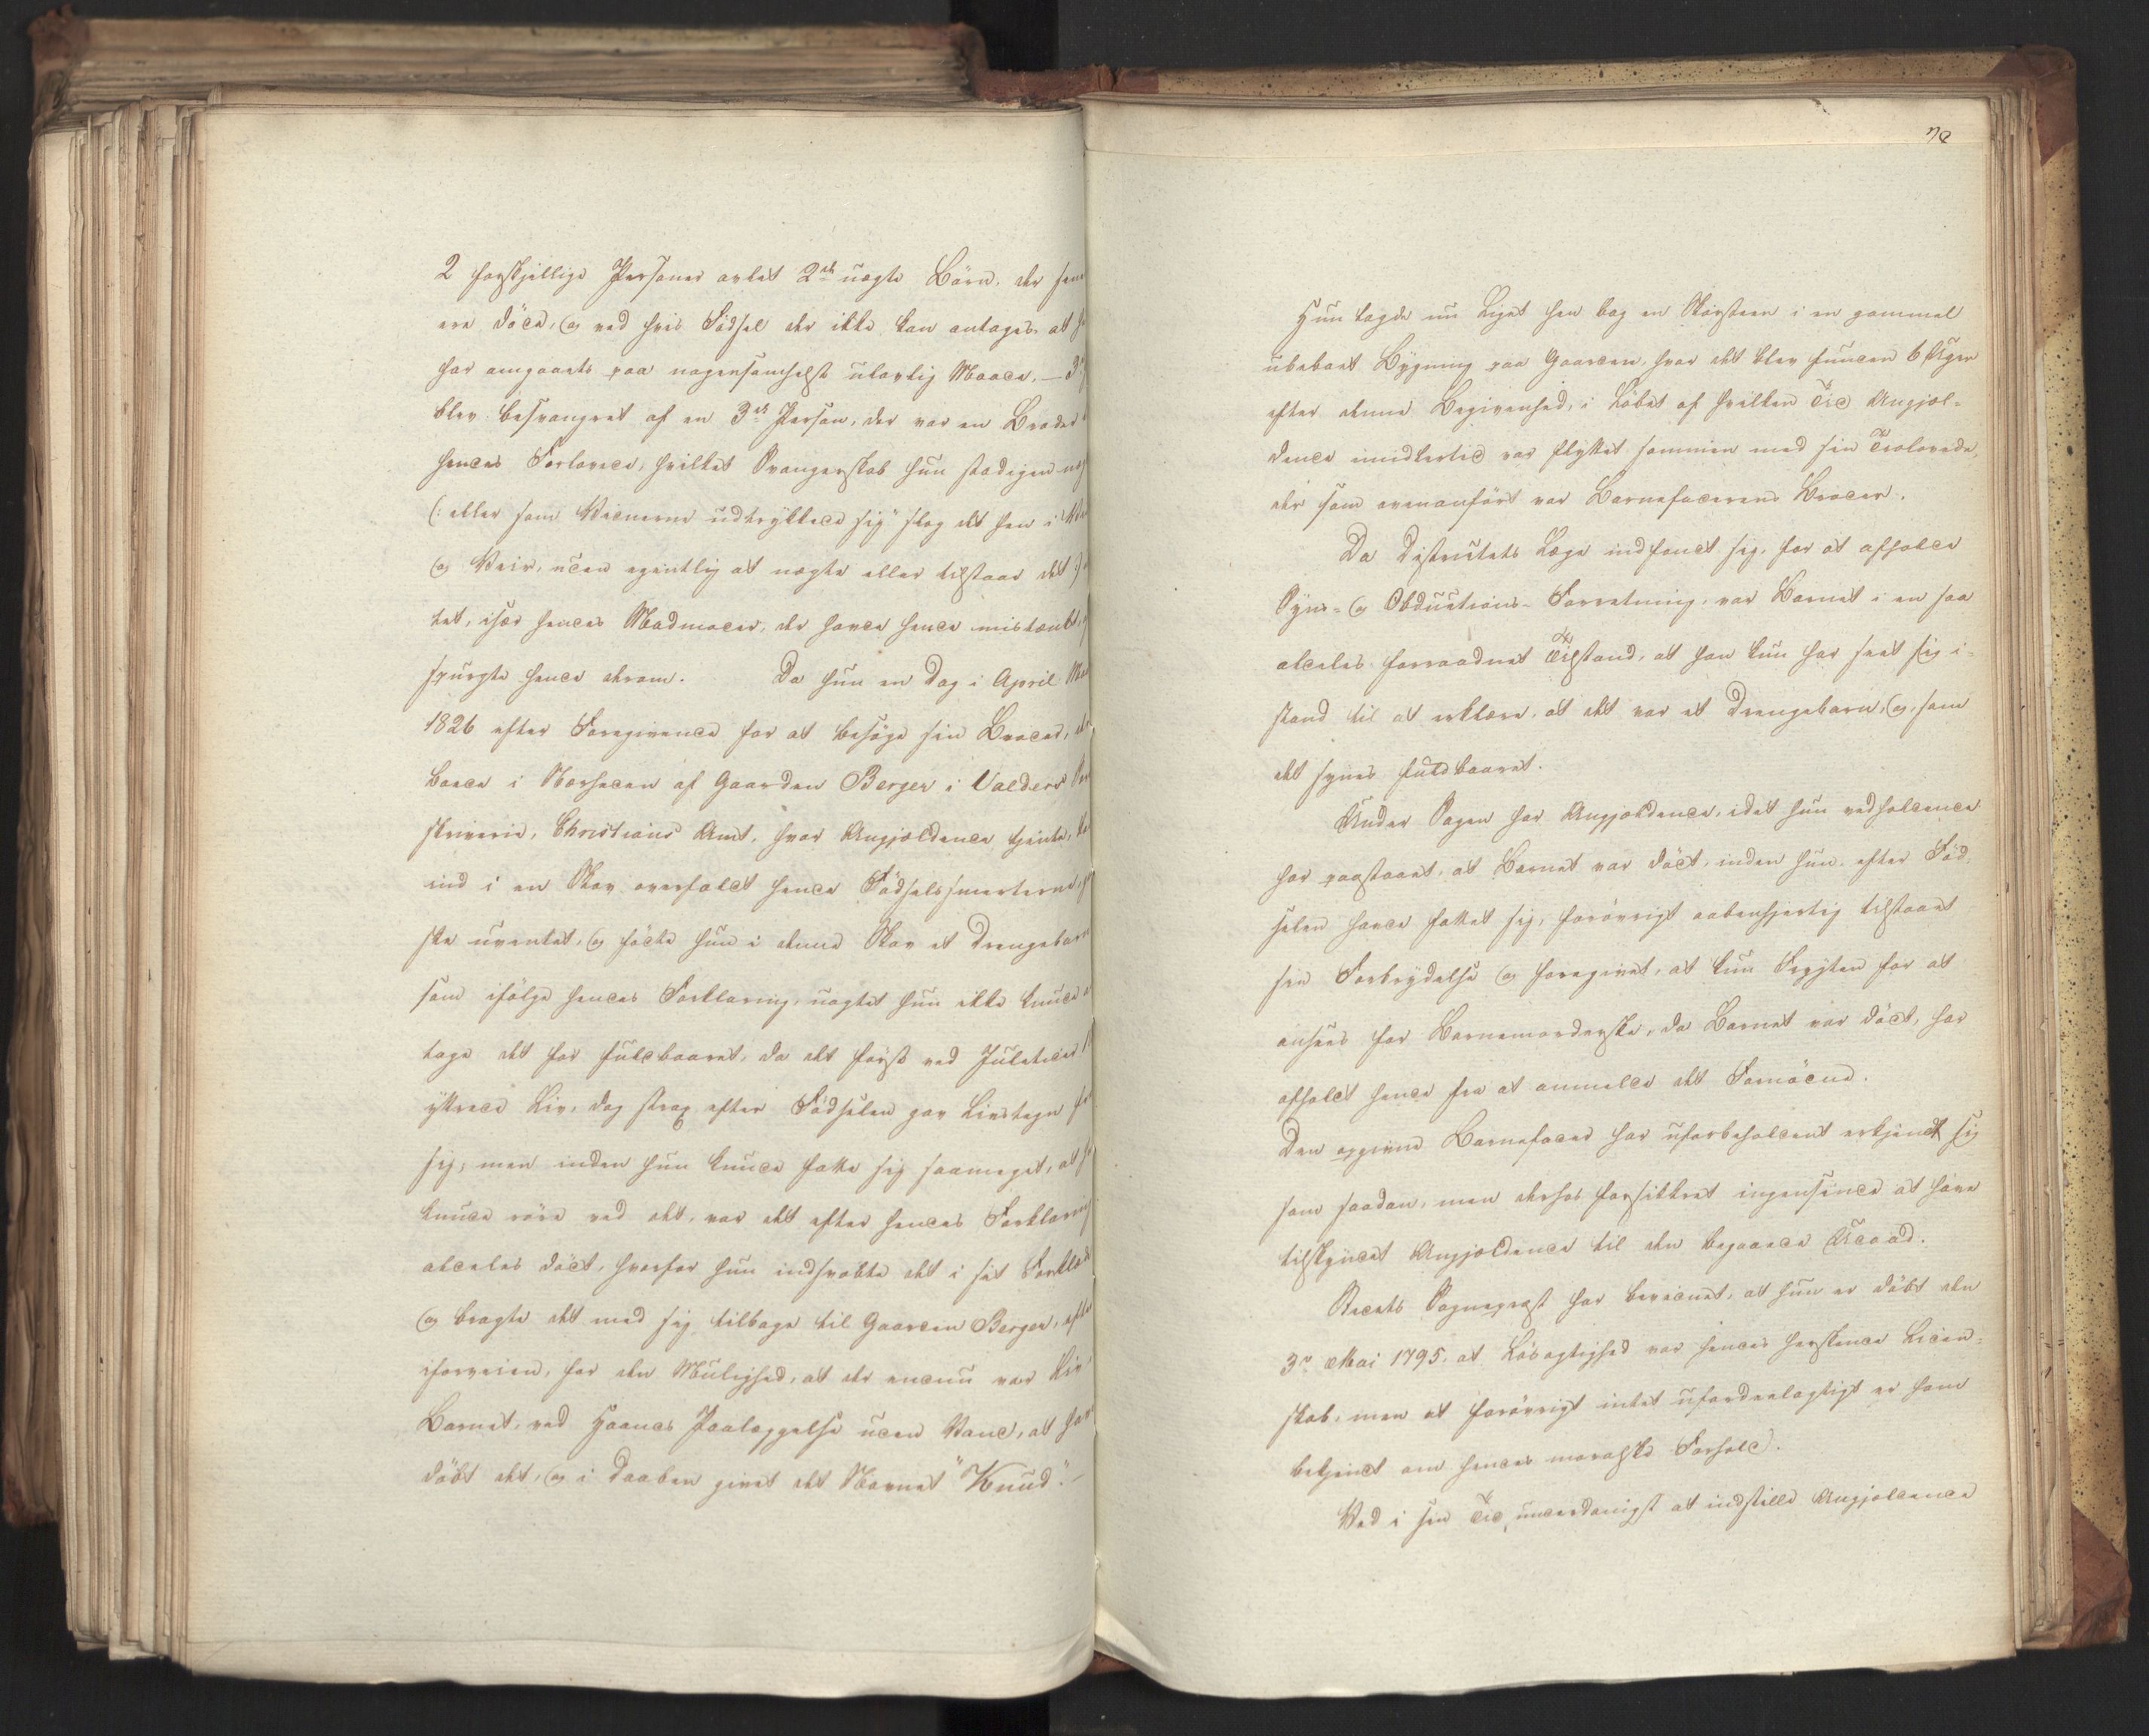 2 forskjellige Personer avlet 2de uægte Børn, der sene
ere döde, og ved hvis Födsel der ikke kan antages at h
har omgaaets paa nogensomhelst ulovlig Maade. — 3die
blev besvangret af en 3die Person, der var en Broder
hendes Forlovede, hvilket Svangerskab hun stadigen næg
(: eller som Vidnerne udtrykkede sig "slog det hen i
og Veir, uden egentlig at nægte eller tilstaae det :)
tet, især hendes Madmoder, der havde hende mistænkt,
spurgte hende derom. Da hun en Dag i April Maa
1826 efter Foregivende for at besöge sin Broder,
boede i Nærheden af Gaarden Berger i Valders
skriverie, Christians Amt, hvor Angjældende tjente,
ind i en Skov overfaldt hende Födselssmerterne,
ske uventet, og födte hun i denne Skov et Drengebarn
som ifölge hendes Forklaring, uagtet hun ikke kunde
tage det for fuldbaaret, da det först ved Juletider
yttrede Liv, dog strax efter Födselen gav Livstegn fra
sig; men inden hun kunde fatte sig saameget, at h
kunde röre ved det, var det efter hendes Forklaring
aldeles dödt, hvorfor hun indsvöbte det i sit Forklæde
og bragte det med sig tilbage til Gaarden Berger, efter
iforveien, for den Mulighed, at der endnu var Liv i
Barnet, ved Haands Paalæggelse uden Vand, at have
döbt det, og i Daaben givet det Navnet "Knud". —
70
Hun lagde nu Liget hen bag en Skorsteen i en gammel
ubeboet Bygning paa Gaarden, hvor det blev funden 6 Uger
efter denne Begivenhed, i Löbet af hvilken Tid Angjæl-
dende imidlertid var flyttet sammen med sin Trolovede,
der som ovenanfört var Barnefaderens Broder.
Da Districtets Læge indfandt sig, for at afholde
Syns- og Obductions-Forretning, var Barnet i en saa
aldeles forraadnet Tilstand, at han kun har seet sig i-
stand til at erklære, at det var et Drengebarn, og, som
det synes fuldbaaret.
Under Sagen har Angjældende, idet hun vedholdende
har paastaaet, at Barnet var dödt, inden hun efter Föd-
selen havde fattet sig, forövrigt aabenhjertig tilstaaet
sin Forbrydelse og foregivet, at kun Frygten for at
ansees for Barnemorderske, da Barnet var dödt, har
afholdt hende fra at anmelde det Fornödne.
Den opgivne Barnefader har uforbeholdent erkjendt sig
som saadan, men derhos forsikkret ingensinde at have
tilskyndet Angjældende til den begaaede Udaad.
Stedets Sognepræst har bevidnet, at hun er döbt den
3die Mai 1795, at Lösagtighed var hendes herskende Liden-
skab, men at forövrigt intet ufordeelagtigt er ham
bekjendt om hendes moralske Forhold.
Ved i sin Tid underdanigst at indstille Angjældende